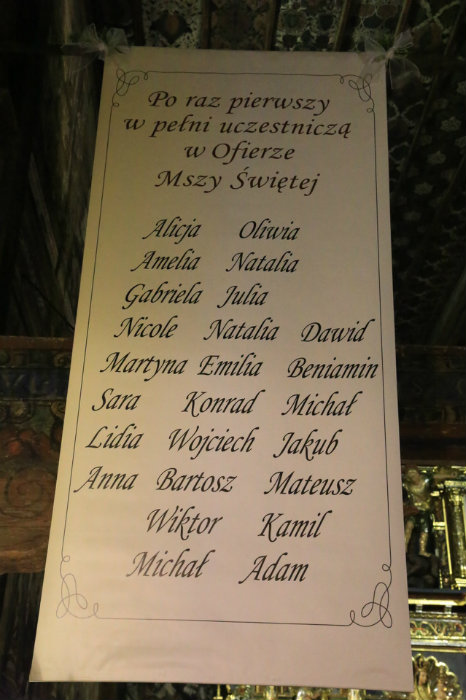 Po raz pierwszy
w pełni uczestniczą
w Ofierze
Mszy Świętej
Alicja Oliwia
Amelia Natalia
Gabriela Julia
Nicole Natalia Dawid
Martyna Emilia Beniamin
Sara Konrad Michał
Lidia Wojciech Jakub
Anna Bartosz Mateusz
Wiktor Kamil
Michał Adam